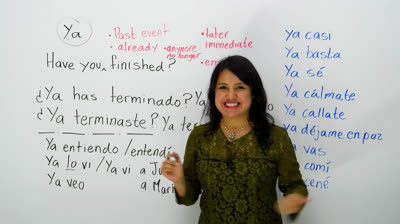 Ya
• Past event
• already
• anymore
no longer
• later
immediate
Have you finished?
¿Ya has terminado? Ya
¿Ya terminaste? Ya
Ya entiendo / entendí
Ya lo vi / Ya vi a
Ya veo
a
Ya casi
Ya basta
Ya sé
Ya cálmate
Ya callate
Ya déjame en paz
vas
comí